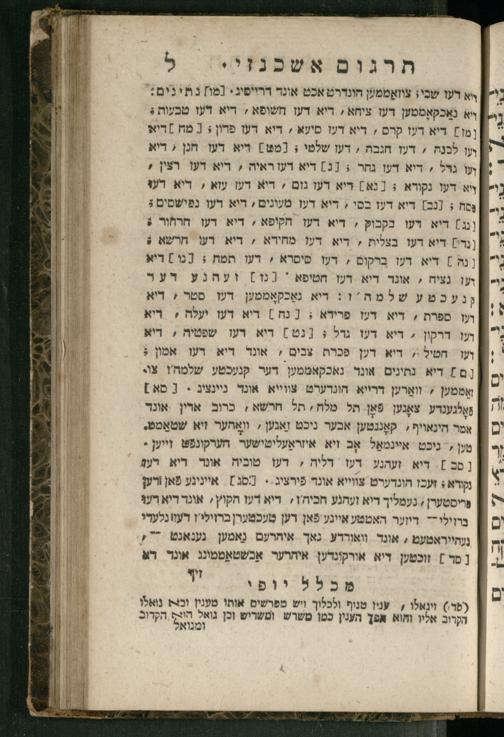 תרגום אשכנזי · ל
דיא דעז שבי ; צוזאממען הונדערט אכט אונד דרייסיג · [מו] נתינים :
דיא נאכקאממען דעז ציחא , דיא דעז חשופא , דיא דעז טבעות ;
[מז] דיא דעז קרס , דיא דעז סיעא , דיא דעז פדון ; [מח] דיא
דעז לבנה , דעז חגבה , דעז שלמי ; [מט] דיא דעז חנן , דיא
דעז גדל , דיא דעז גחר ; [נ] דיא דעז ראיה , דיא דעז רצין ,
דיא דעז נקודא ; [נא] דיא דעז גזם , דיא דעז עזא , דיא דעז
פסח ; [נב] דיא דעז בסי , דיא דעז מעונים , דיא דעז נפישסים ;
[נג] דיא דעז בקבוק , דיא דעז חקופא , דיא דעז חרחור ;
[נד] דיא דעז בצלית , דיא דעז מחידא , דיא דעז חרשא ;
[נה] דיא דעז ברקום , דעז סיסרא , דעז תמח ; [נו] דיא
דעז נציח , אונד דיא דעז חטיפא · [נז] זעהנע דער
קנעכטע שלמה'ז : דיא נאכקאממען דעז סטר , דיא
דעז ספרת , דיא דעז פרידא ; [נח] דיא דעז יעלה , דיא
דעז דרקון , דיא דעז גדל ; [נט] דיא דעז שפטיה , דיא
דעז חטיל , דיא דען פכרת צבים , אונד דיא דעז אמון ;
[ס] דיא נתינים אונד נאכקאממען דער קנעכטע שלמה'ז צו=
זאממען , ווארען דרייא הונדערט צווייא אונד ניינציג · [סא]
פאלגענדע צאגען פאן תל מלח , תל חרשא , כרוב אדון אונד
אמר הינאויף , קאננטען אבער ניכט זאגען , וואהער זיא שטאממ=
טען , ניכט איינמאל אב זיא איזראעליטישער הערקונפט זייען ·
[סב] דיא זעהנע דעז דליה , דעז טוביה אונד דיא דעז
נקודא ; זעכז הונדערט צווייא אונד פירציג · [סג] איינינע פאן דען
פריסטערן , נעמליך דיא זעהנע חביה'ז , דיא דעז הקוץ , אונד דיא דעז
ברזילי — דיזער האטטע איינע פאן דען טעכטערן ברזילי'ז דעז גלעדי
געהייראטעט , אונד וואורדע נאך איהרעם נאמען גענאנט — ,
[סד] זוכטען דיא אורקונדען איהרער אבשטאממונג אונד דא
זיך
מכלל יופי
(סד) ויגאלו , ענין טנוף ולכלוך ויש מפרשים אותו מענין ובא גואלו
הקרוב אליו והוא הפך הענין כמו משרש ומשריש וכן גואל הוא הקרוב
ומגואל